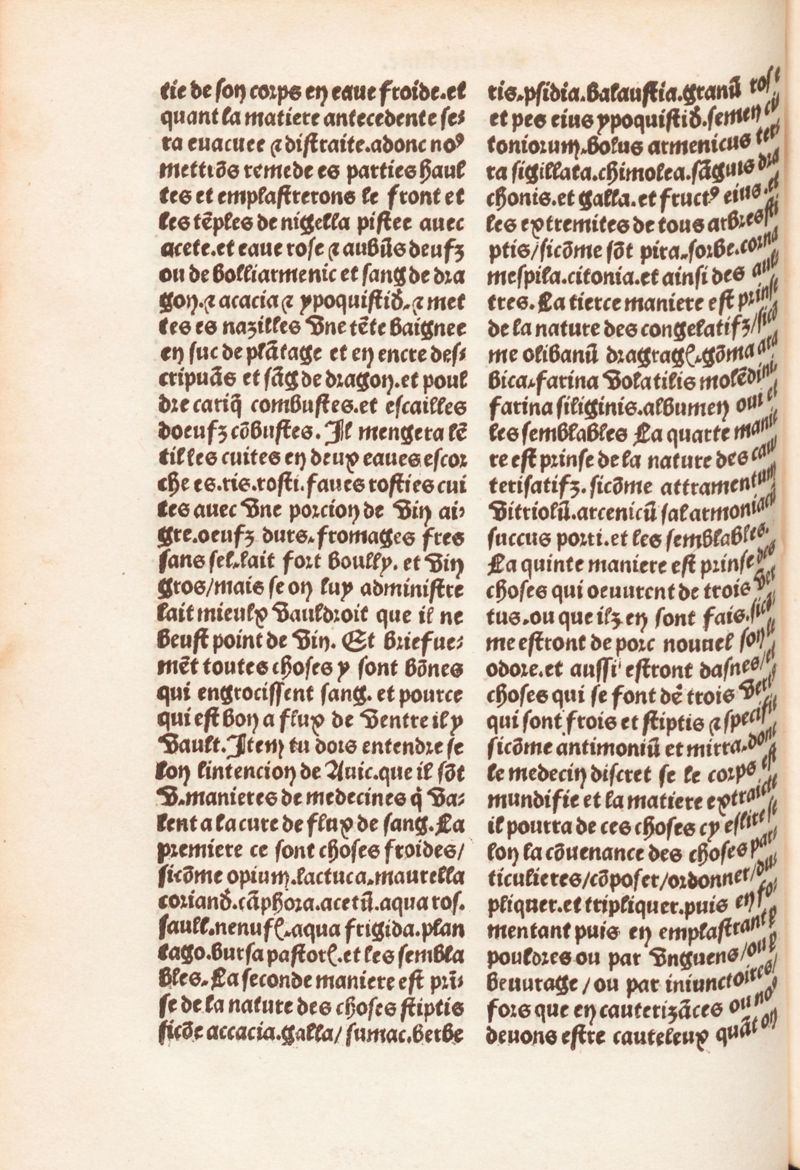 tie de son corps en eaue froide.et
quant la matiere antecedente se-
ra euacuee ⁊ distraite.adonc noꝰ
mettrõs remede es parties haul
tes et emplastrerons le front et
les tẽples de nigella pistee auec
acete.et eaue rose ⁊ aubũs deufz
ou de bolliarmenic et sang de dra
gon.⁊ acacia ⁊ ypoquistid̃.⁊ met
tes es nazilles vne tẽte baignee
en suc de plãtage et en encre des-
cripuãs et sãg de dragon.et poul
dre cariq̃ combustes.et escailles
doeufz cõbustes. Il mengera lẽ
tilles cuites en deux eaues escor
che es.ris.rosti.faues rosties cui
tes auec vne porcion de vin ai-
gre.oeufz durs.fromages fres
sans sel.lait fort boully. et vin
gros/mais se on luy administre
lait mieulx vauldroit que il ne
beust point de vin. Et briefue-
mẽt toutes choses y sont bõnes
qui engrocissent sang. et pource
qui est bon a flux de ventre il y
vault.Item tu dois entendre se
lon lintencion de Auic.que il sõt
v.manieres de medecines q̃ va-
lent a la cure de flux de sang.La
premiere ce sont choses froides/
sicõme opium.lactuca.maurella
coriand̃.cãphora.acetũ.aqua ros.
saull.nenuf̃.aqua frigida.plan
tago.bursa pastor̃.et les sembla
bles.La seconde maniere est prĩ-
se de la nature des choses stiptis
sicõe accacia.galla/sumac.berbe
tris.psidia.balaustia.granũ ros
et pes eius ypoquistid̃.semen ci
toniorum.bolus armenicus ter
ra sigillata.chimolea.sãguis dra
chonis.et galla.et fructꝰ eius.et
les extremites de tous arbres sti
ptis/sicõme sõt pira.sorbe.corna
mespila.citonia.et ainsi des aul
tres.La tierce maniere est prinse
de la nature des congelatifz/sicõ
me olibanũ dragrag̃.gõma ara
bica.farina volatilis molẽdini.
farina siliginis.albumen oui et
les semblables La quarte manie
re est prinse de la nature des cau
terisatifz. sicõme attramentum
vitriolũ.arcenicũ salarmoniacũ
succus porri.et les semblables.
La quinte maniere est prinse des
choses qui oeuurent de trois ver
tus.ou que ilz en sont fais.sicõ
me estront de porc nouuel son
odore.et aussi estront dasnes/et
choses qui se font dẽ trois vert
qui sont frois et stiptis ⁊ specifi
sicõme antimoniũ et mirra.dont
le medecin discret se le corps est
mundifie et la matiere extraicte
il pourra de ces choses cy eslire se
lon la cõuenance des choses par
ticulieres/cõposer/ordonner/du
pliquer.et tripliquer.puis en fo
mentant puis en emplastrant p
pouldres ou par vnguens/ou p
beuurage/ou par iniunctoires/
fors que en cauterizãces ou noꝰ
deuons estre cauteleux quãt on